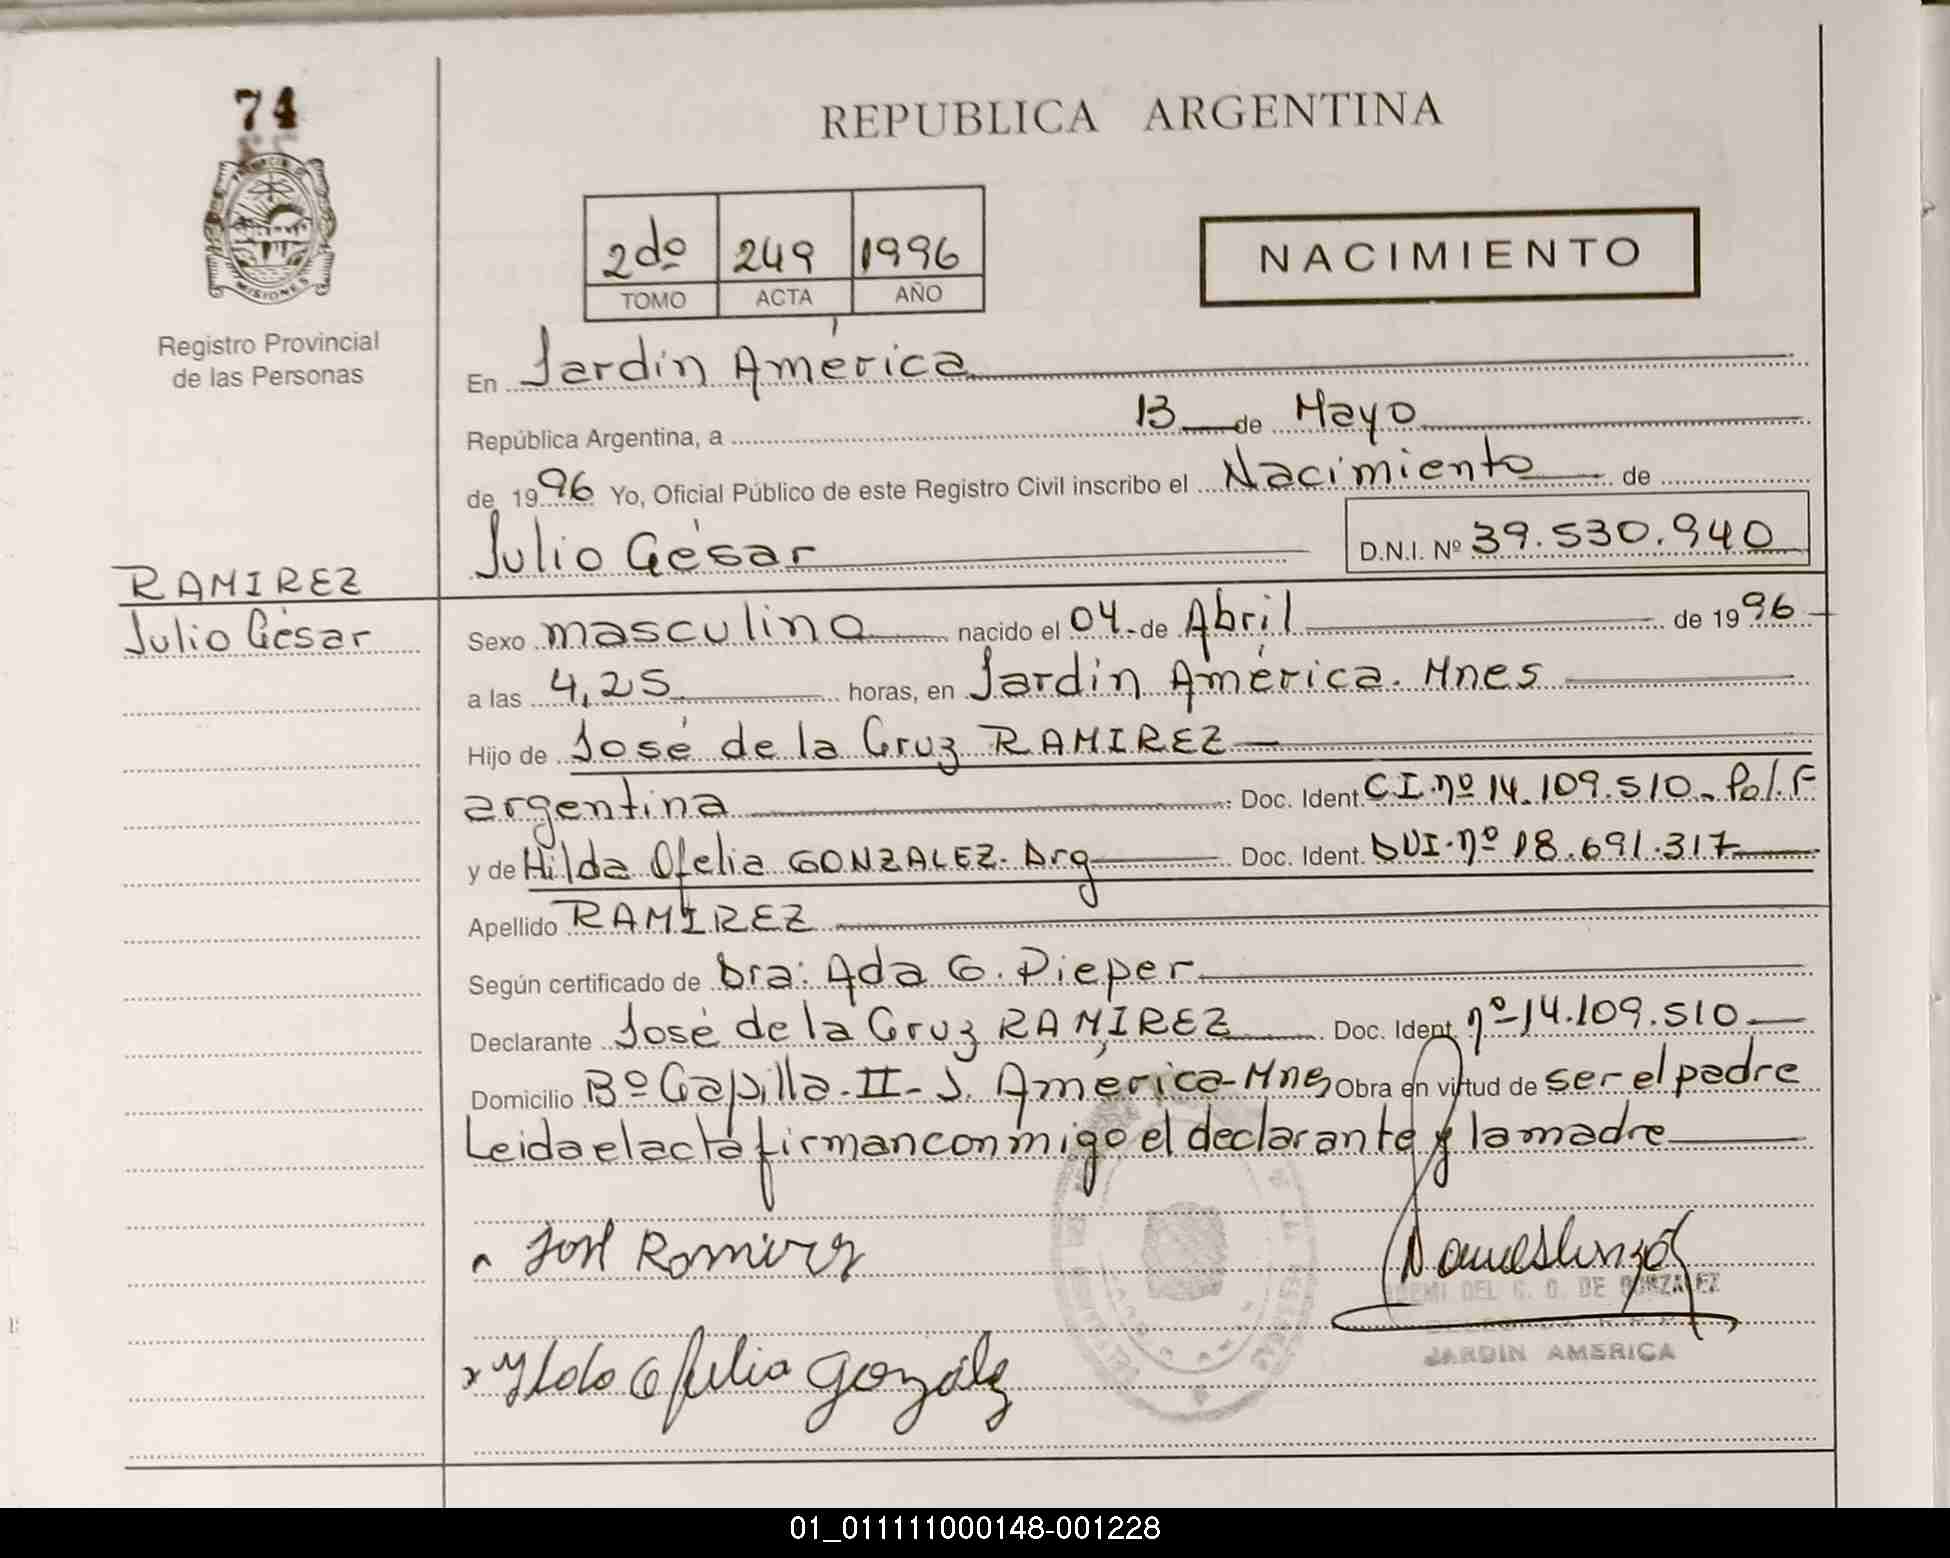 74
MISIONES
Registro Provincial
de las Personas
REPUBLICA ARGENTINA
2do 249 1996
TOMO ACTA AÑO
NACIMIENTO
En Jardín América
República Argentina, a 13 de Mayo
de 1996 Yo, Oficial Público de este Registro Civil inscribo el Nacimiento de
Julio César D.N.I. Nº 39.530.940
RAMIREZ
Julio César
Sexo masculino nacido el 04 de Abril de 1996
a las 4,25 horas, en Jardín América. Mnes
Hijo de José de la Cruz RAMIREZ
argentina Doc. Ident. C.I. nº 14.109.510 - Pol. F
y de Hilda Ofelia GONZALEZ. Arg Doc. Ident. DUI. nº 18.691.317
Apellido RAMIREZ
Según certificado de Dra: Ada G. Pieper
Declarante José de la Cruz RAMIREZ Doc. Ident. nº 14.109.510
Domicilio Bº Capilla - II - J. América - Mnes Obra en virtud de ser el padre
Leida el acta firman conmigo el declarante y la madre
José Ramirez
DEL C. G. DE GONZALEZ
JARDIN AMERICA
Ylda Ofelia González
01_011111000148-001228